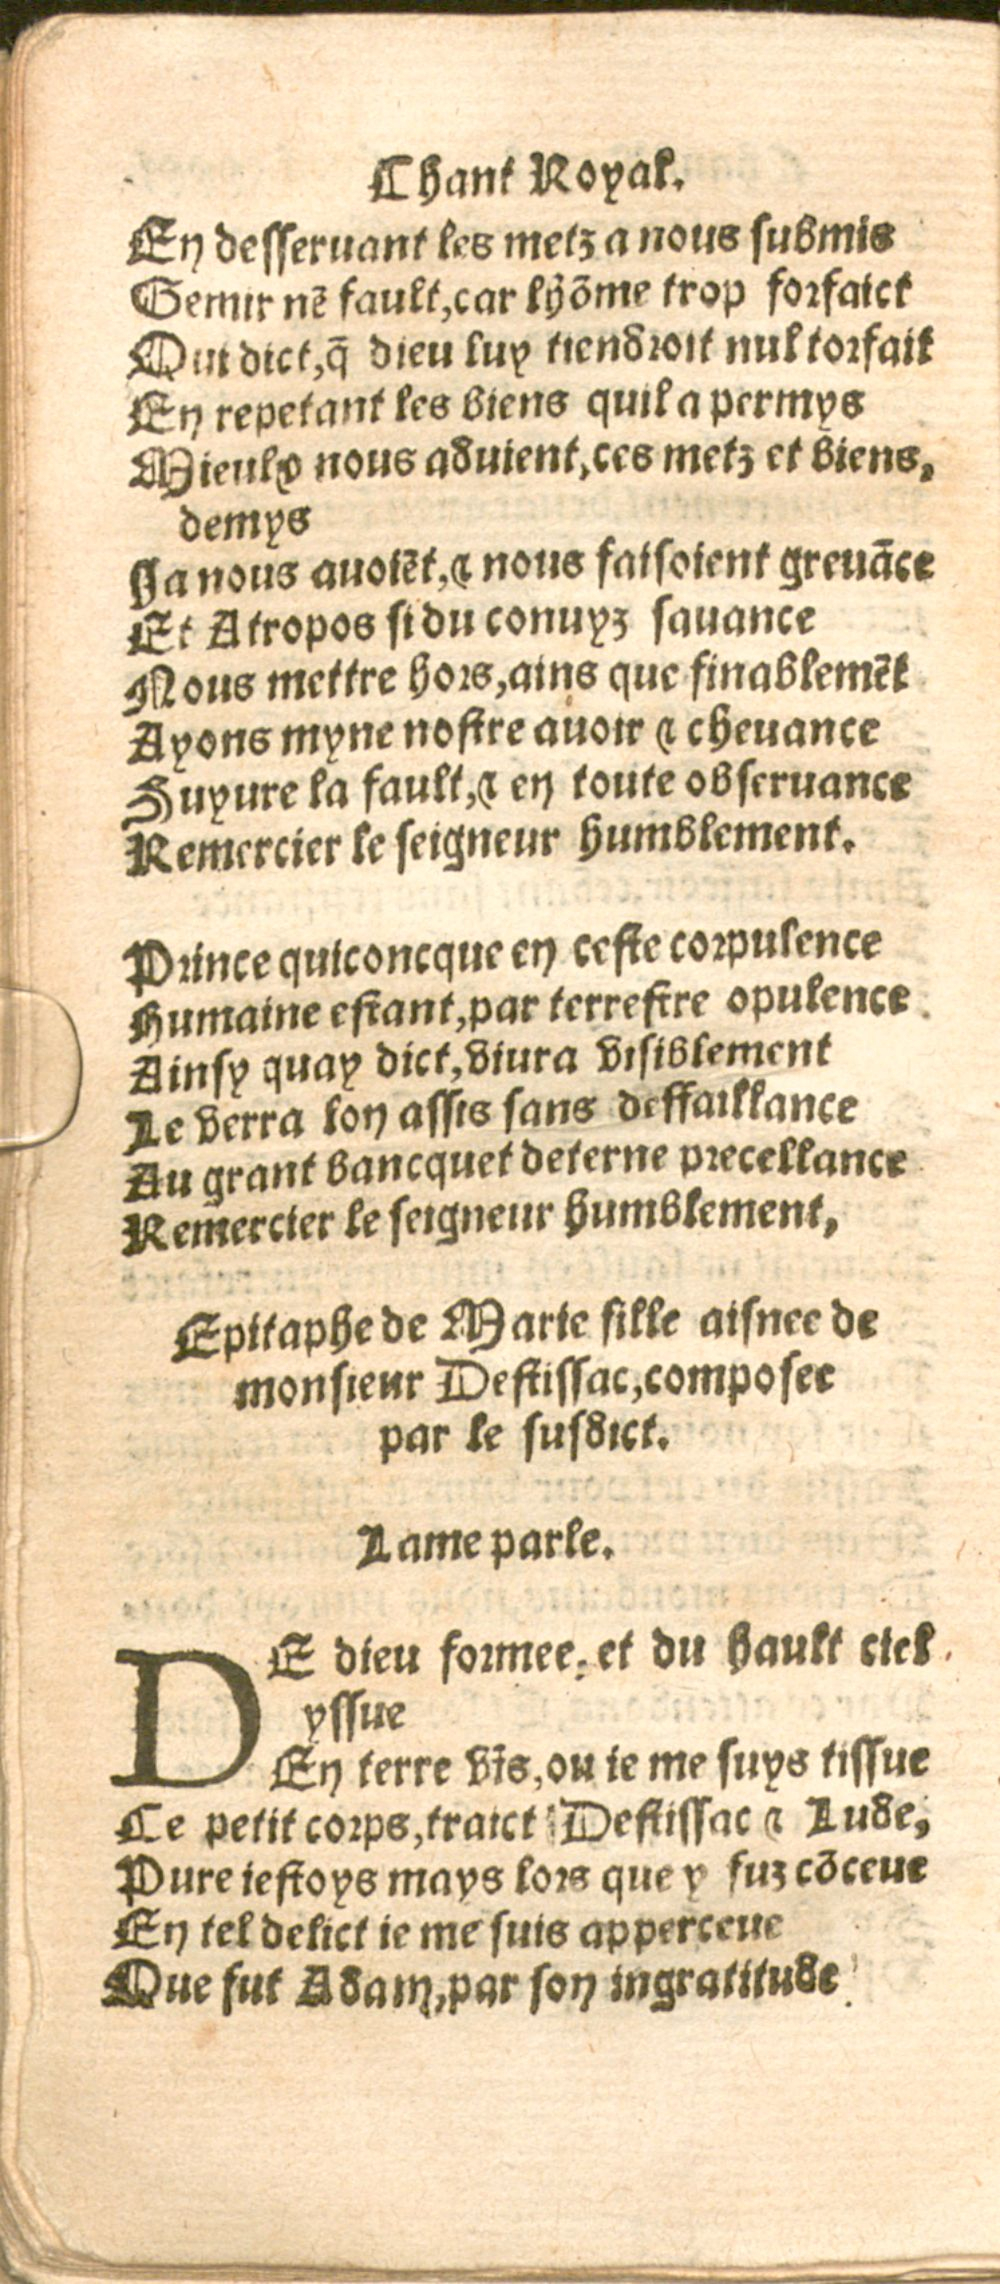 Chant Royal.
En desseruant les metz a nous submis
Gemir nē fault, car lhōme trop forfaict
Qui dict, q̄ dieu luy tiendroit nul torfait
En repetant les biens quil a permys
Mieulx nous aduient, ces metz et biens,
demys
Ja nous auoiēt, ⁊ nous faisoient greuāce
Et Atropos si du conuyz sauance
Nous mettre hors, ains que finablemēt
Ayons myne nostre auoir ⁊ cheuance
Suyure la fault, ⁊ en toute obseruance
Remercier le seigneur humblement.
Prince quiconcque en ceste corpulence
Humaine estant, par terrestre opulence
Ainsy quay dict, viura visiblement
Le verra lon assis sans deffaillance
Au grant bancquet deterne precellance
Remercier le seigneur humblement,
Epitaphe de Marie fille aisnee de
monsieur Destissac, composee
par le susdict.
Lame parle.
DE dieu formee, et du hault ciel
yssue
En terre vīs, ou ie me suys tissue
Ce petit corps, traict Destissac ⁊ Lude,
Pure iestoys mays lors que y fuz cōceue
En tel delict ie me suis apperceue
Que fut Adam, par son ingratitude